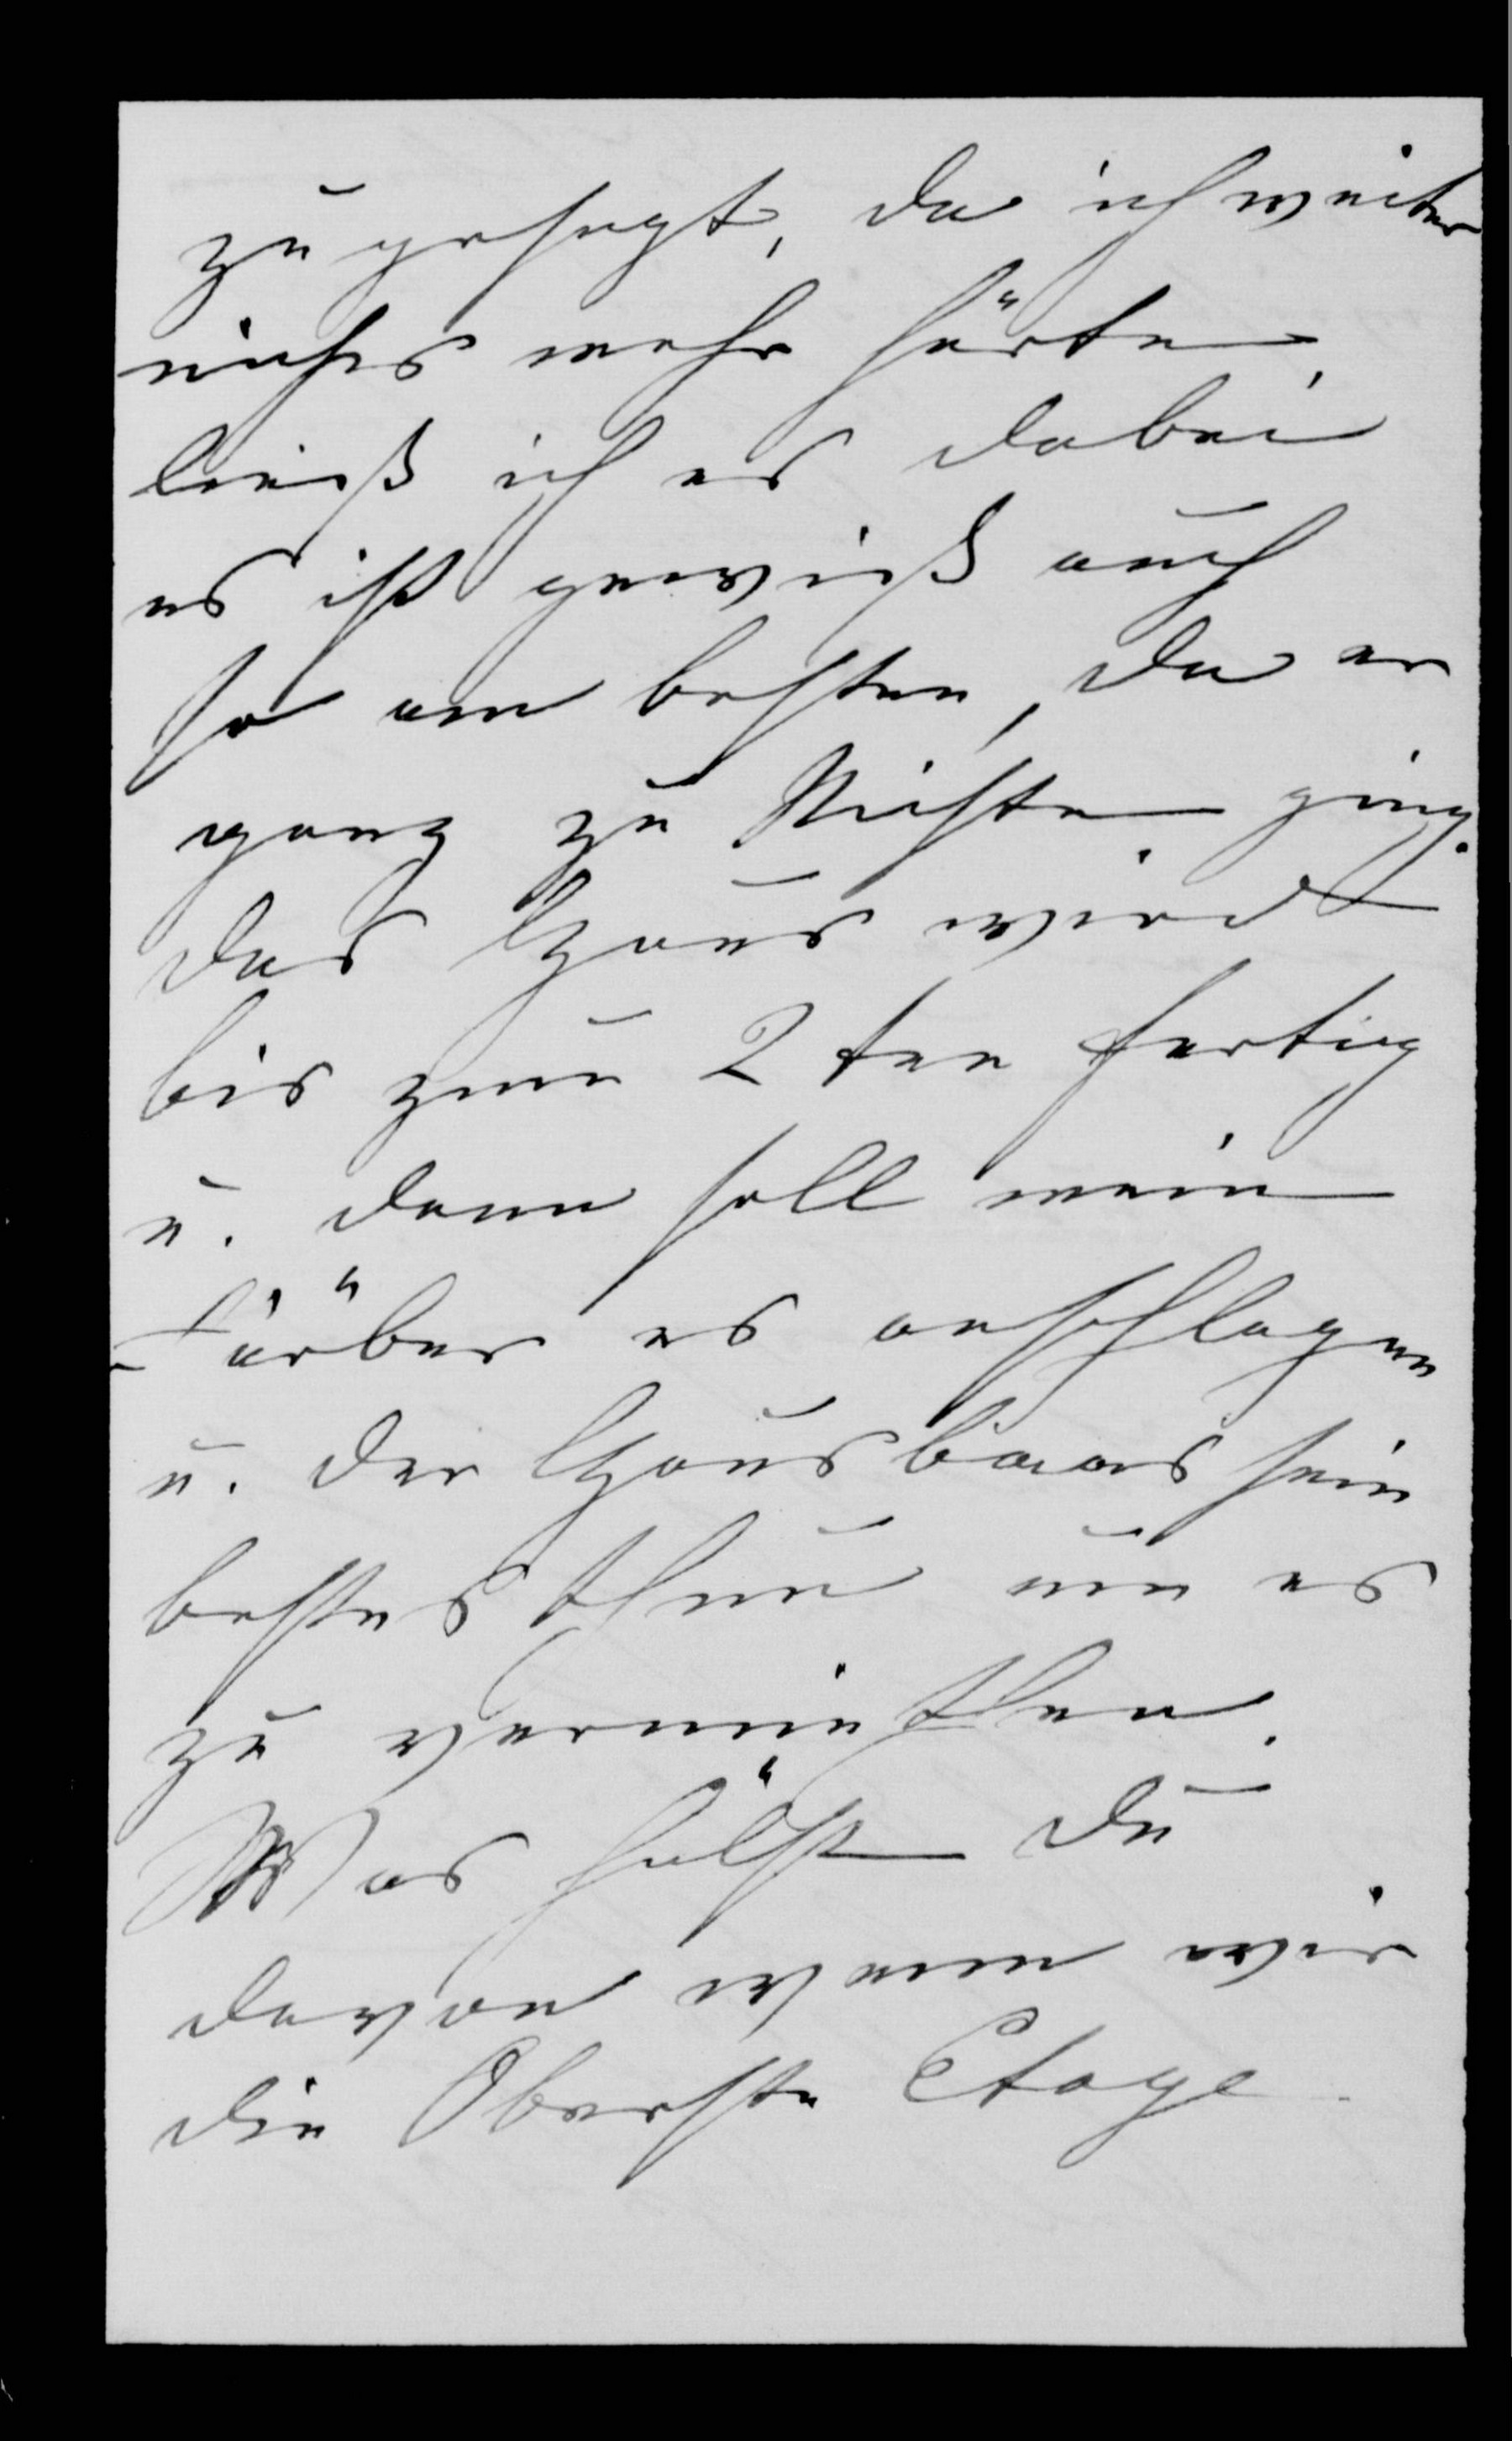 zugesagt, da ich weiter
nichts mehr hörte,
ließ ich es dabei
es ist gewiß auch
so am besten, da er
ganz zu Nichte ging.
Das Haus wird
bis zum 2ten fertig
u. dann soll mein
Färber es anschlagen
u. der Hausbaas sein
bestes thun um es
zu vermiethen.
Was hälst Du
davon wenn wir
die Oberste Etage